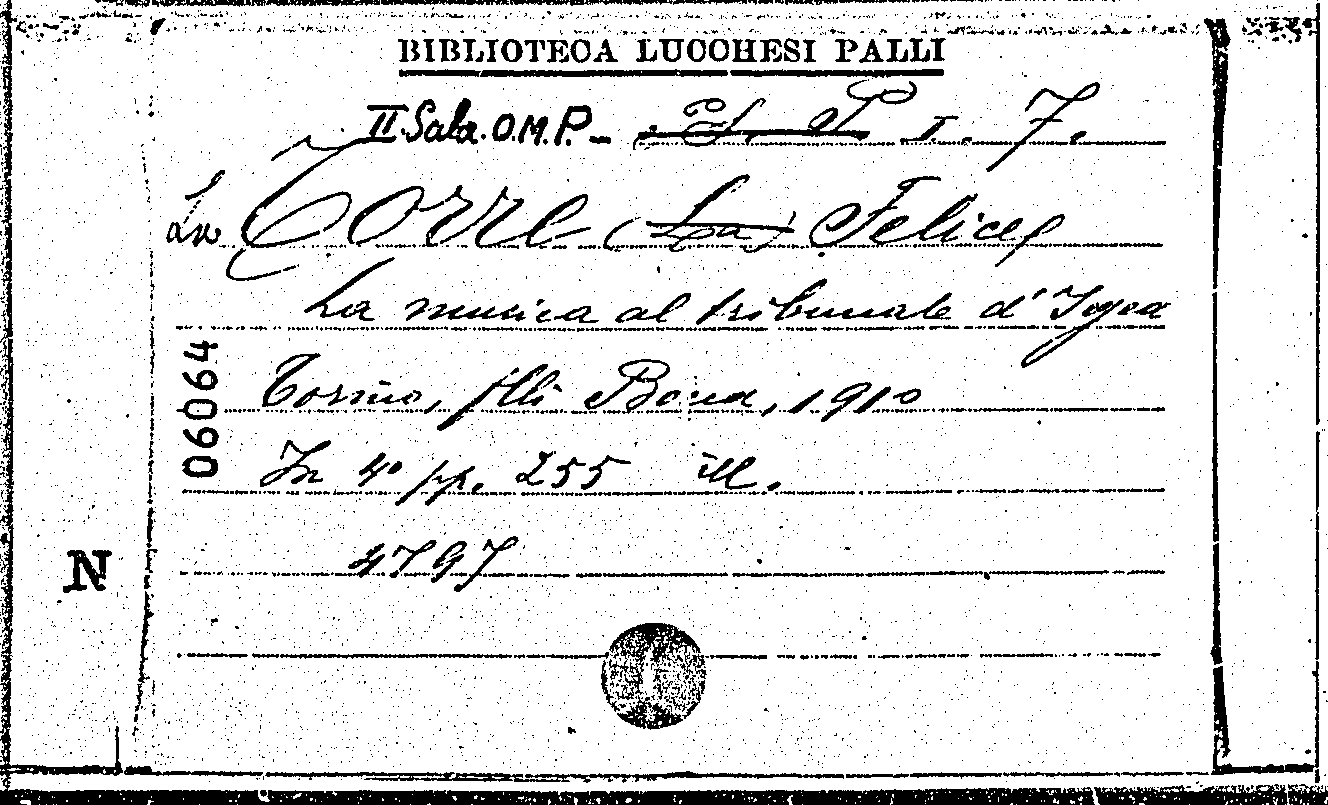 BIBLIOTECA LUCCHESI PALLI
II Sala. O.M.P. - I. 7.
La Torre (La) Felice
La musica al tribunale d'Igea
Torino, flli Bona, 1910
In 4° pp. 255 ill.
4797
06064
N